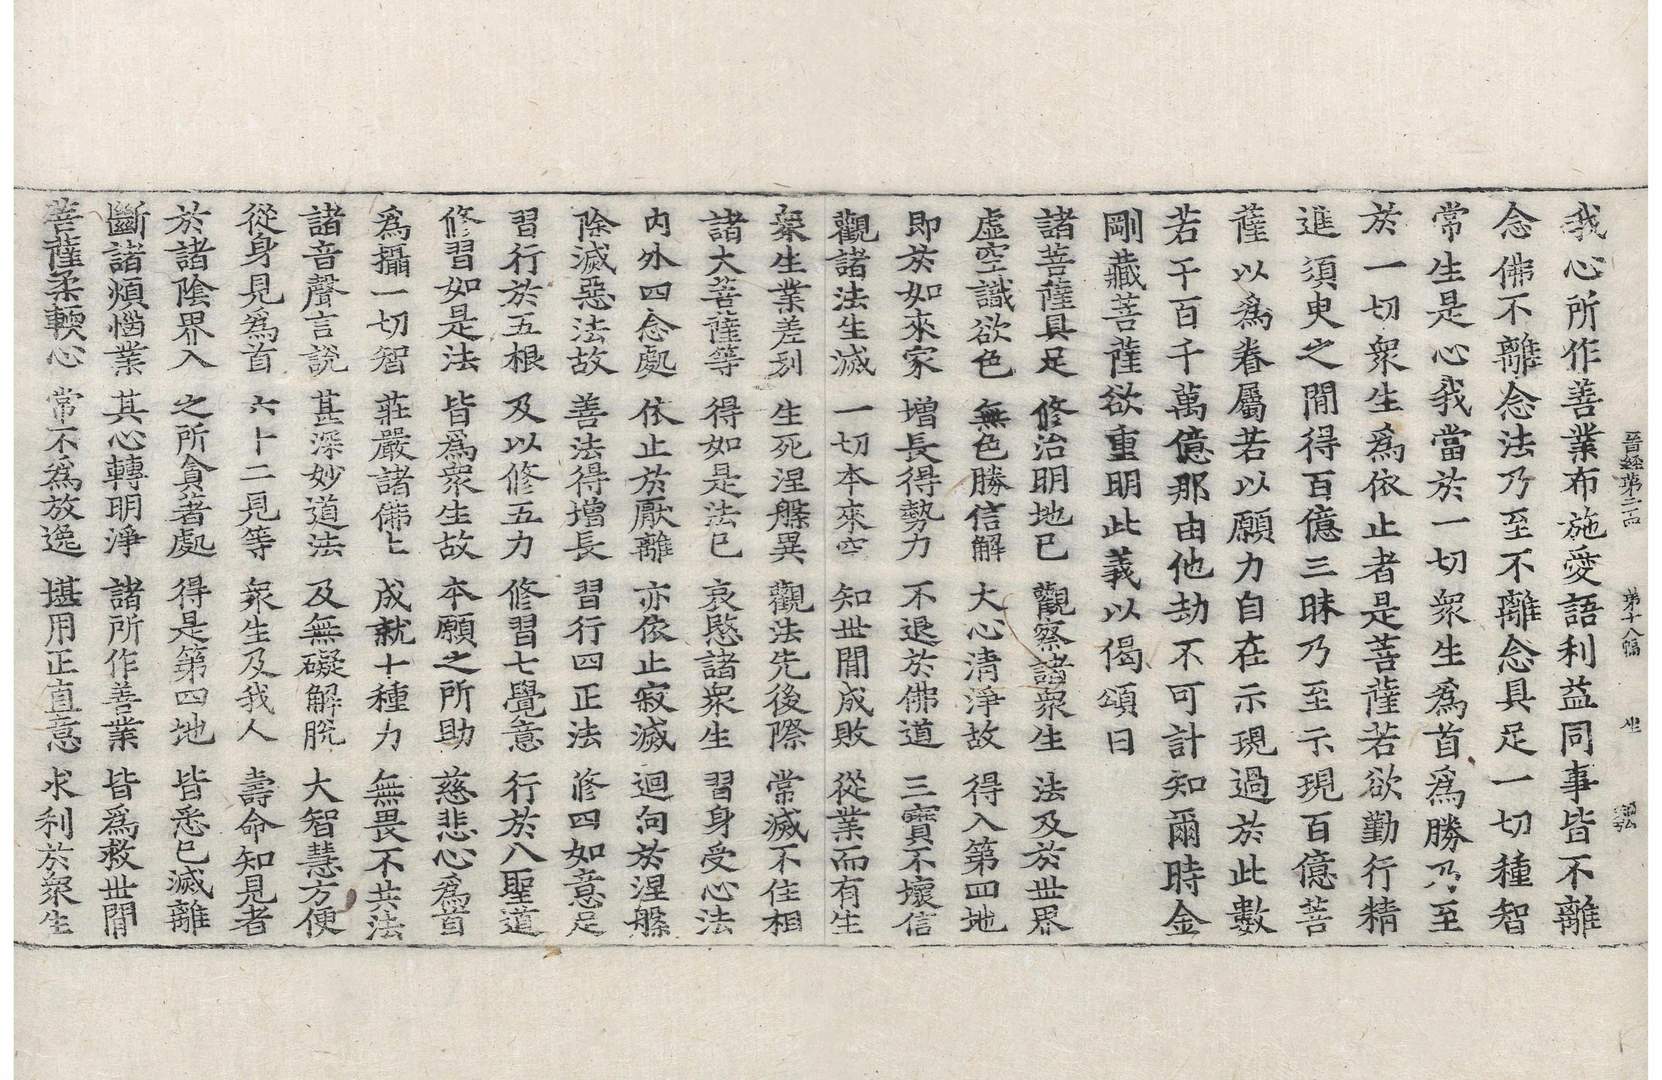 晉經第二而 第十八幅 坐
我心所作善業布施愛語利益同事皆不離
念佛不離念法乃至不離念具足一切種智
常生是心我當於一切衆生爲首爲勝乃至
於一切衆生爲依止者是菩薩若欲勤行精
進須臾之閒得百億三昧乃至示現百億菩
薩以爲眷屬若以願力自在示現過於此數
若干百千萬億那由他劫不可計知爾時金
剛藏菩薩欲重明此義以偈頌曰
諸菩薩具足 修治明地已 觀察諸衆生 法及於世界
虛空識欲色 無色勝信解 大心淸淨故 得入第四地
即於如來家 增長得勢力 不退於佛道 三寶不壞信
觀諸法生滅 一切本來空 知世閒成敗 從業而有生
衆生業差別 生死涅槃異 觀法先後際 常滅不住相
諸大菩薩等 得如是法已 哀愍諸衆生 習身受心法
內外四念處 依止於厭離 亦依止寂滅 迴向於涅槃
除滅惡法故 善法得增長 習行四正法 修四如意足
習行於五根 及以修五力 修習七覺意 行於八聖道
修習如是法 皆爲衆生故 本願之所助 慈悲心爲首
爲攝一切智 莊嚴諸佛土 成就十種力 無畏不共法
諸音聲言說 甚深妙道法 及無礙解脫 大智慧方便
從身見爲首 六十二見等 衆生及我人 壽命知見者
於諸陰界入 之所貪著處 得是第四地 皆悉已滅離
斷諸煩惱業 其心轉明淨 諸所作善業 皆爲救世閒
菩薩柔輭心 常不爲放逸 堪用正直意 求利於衆生